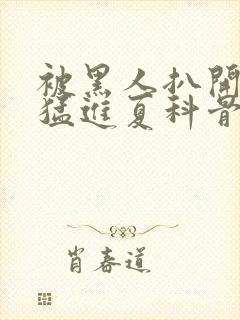 被黑人扒開
猛進夏科骨
肖春道